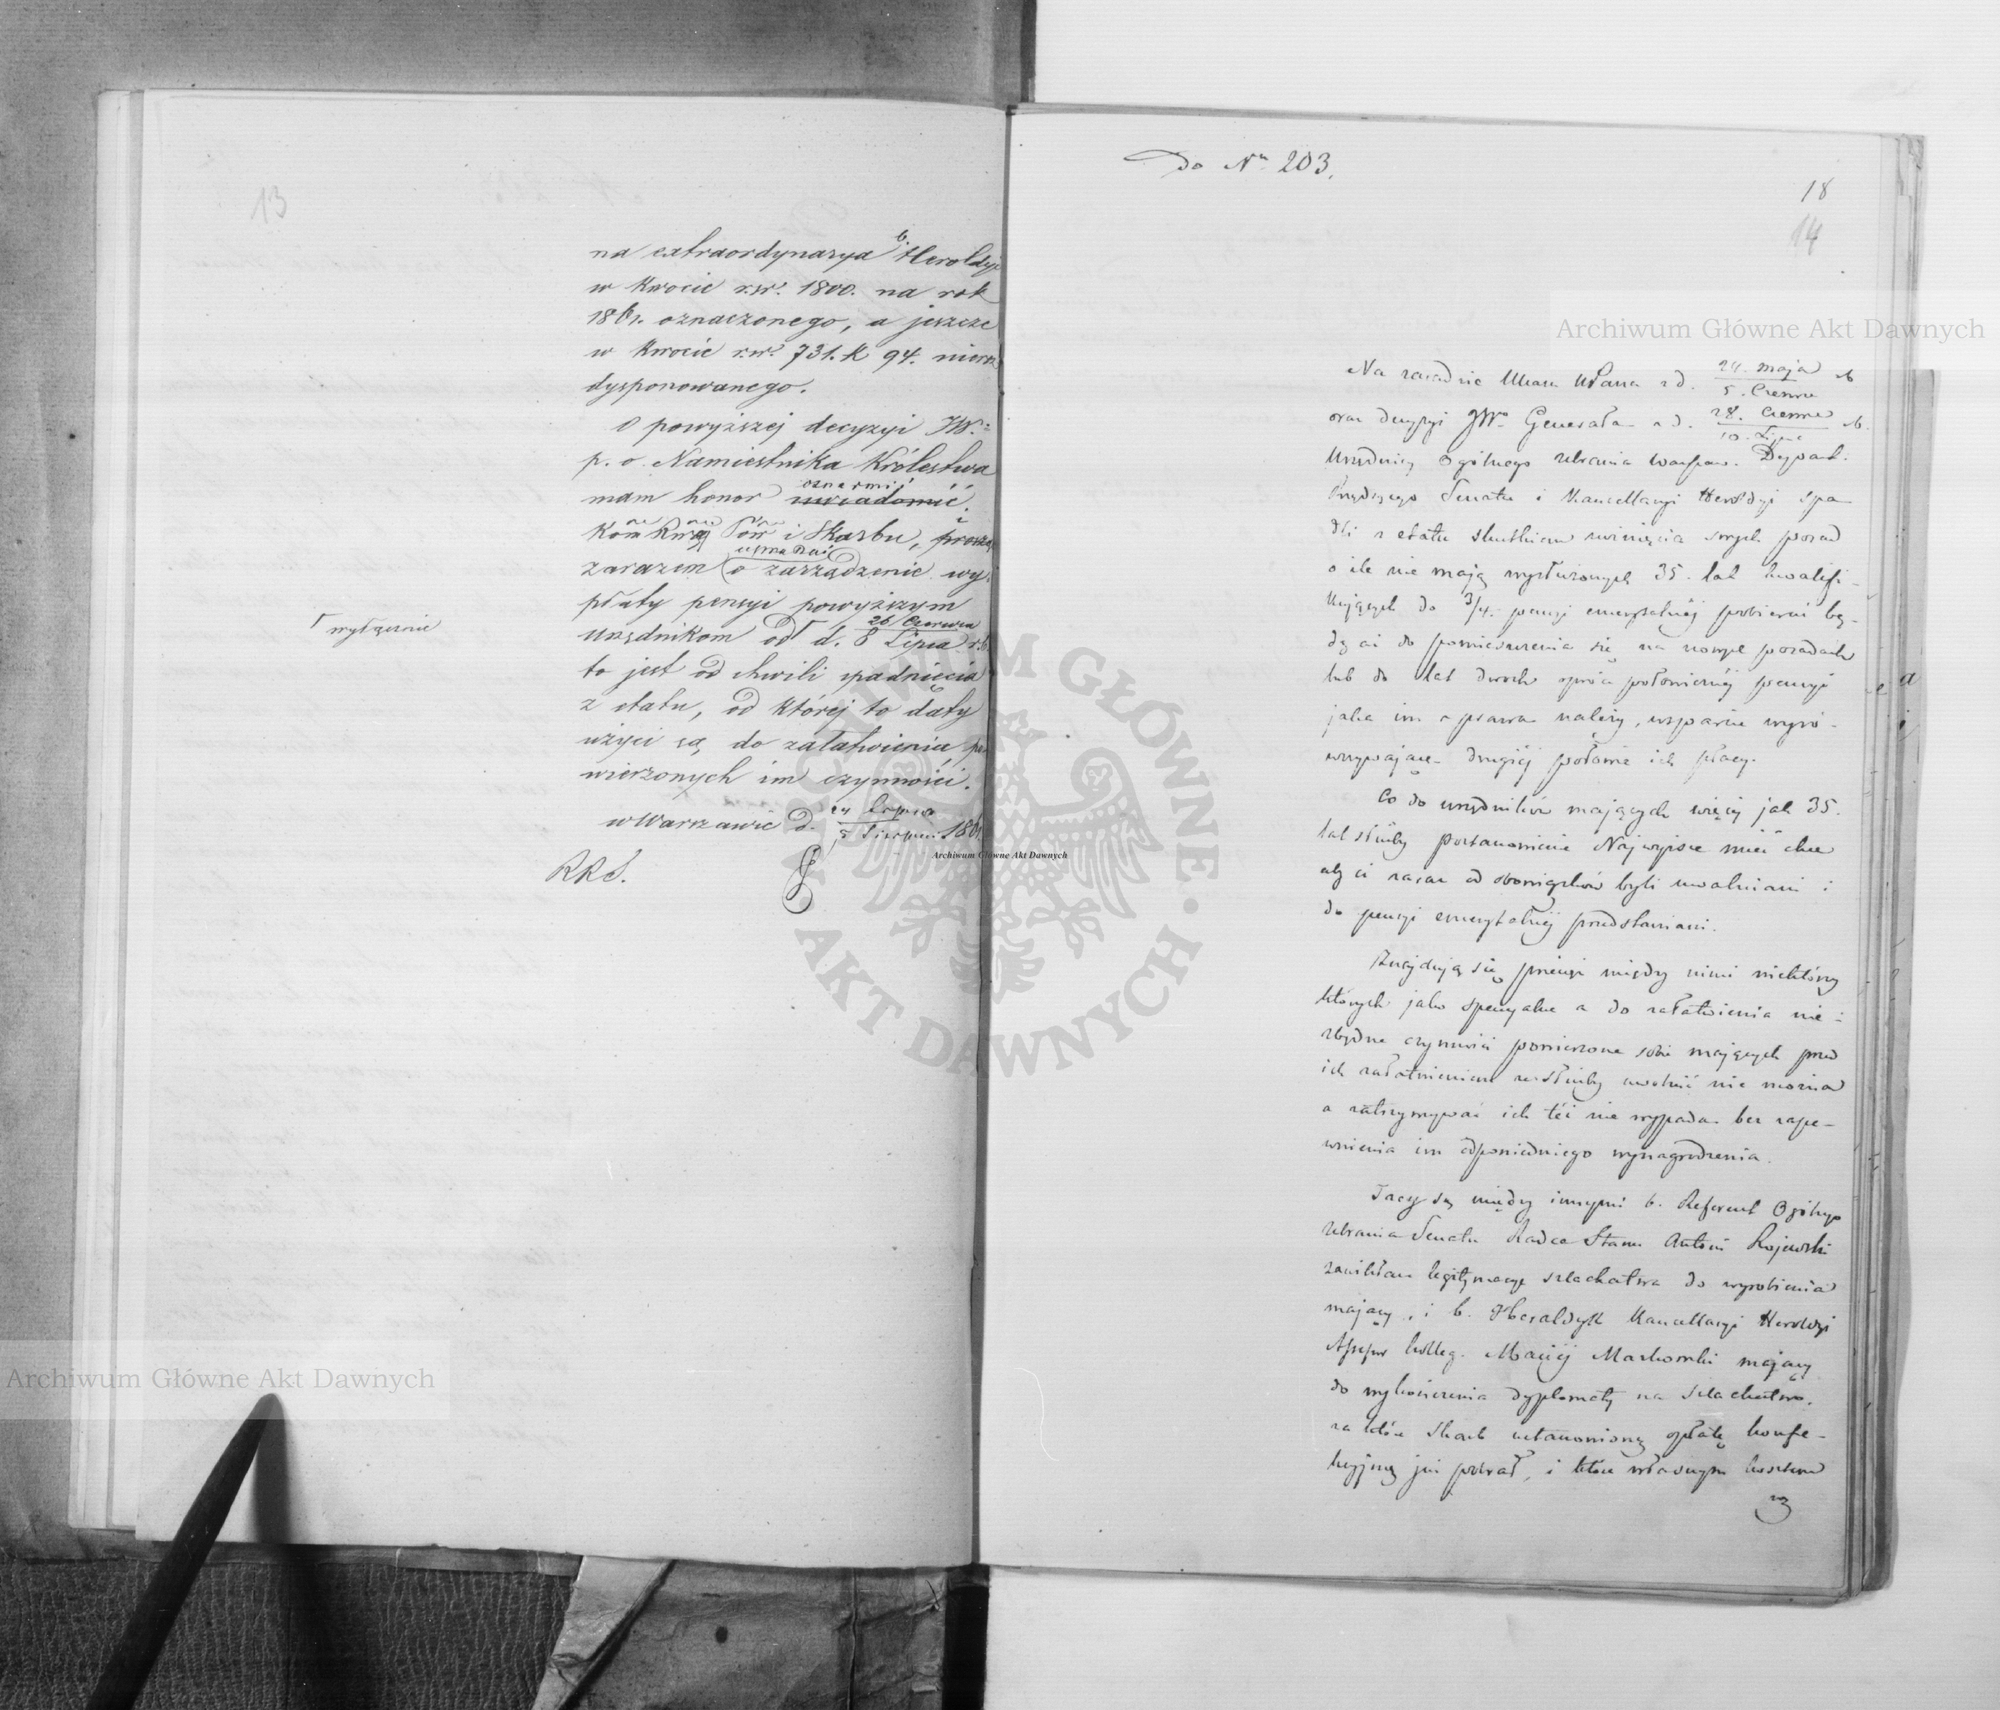 13
na extraordynarya b. Heroldyi
w kwocie r.sr. 1800. na rok
1861. oznaczonego, a jeszcze
w kwocie r.sr. 731. k 94. nieroz
dysponowanego.
O powyższej decyzyi JW:
p. o. Namiestnika Królestwa
mam honor uwiadomić oznajmić
Kom Rzą Przy i Skarbu, prosząc
zarazem o zarządzenie wy
płaty pensyi powyższym
urzędnikom od d. 26 Czerwca / 8 Lipca r.b.
wyłącznie
to jest od chwili spadnięcia
z etatu, od której to daty
użyci są do załatwienia po
wierzonych im czynności.
w Warszawie d. 24 Lipca / 5 Sierpnia 1861
RRS.
do Nr 203.
18
14
Na zasadzie Ukazu z d. 24. maja / 5. Czerwca
oraz decyzyi JW. Generała z d. 28. Czerwca / 10. Lipca
Urzędnicy Ogólnego Zebrania Warszaw. Depart.
Rządzącego Senatu i Kancellaryi Heroldyi spa
dli z etatu skutkiem zwinięcia swych posad
o ile nie mają wysłużonych 35. lat kwalifi-
kujących do 3/4. pensyi emerytalnej pobierać bę-
dą aż do pomieszczenia się na nowych posadach
lub do lat dwóch oprócz połowicznej pensyi
jaka im z prawa należy, wsparcie wyró-
wnywające drugiej połowie ich płacy.
Co do urzędników mających więcej jak 35.
lat służby postanowienie Najwyższe mieć chce
aby ci zaraz od obowiązków byli uwalniani i
do pensyi emerytalnej przedstawiani.
Znajdują się przecież między nimi niektórzy
których jako specyalne a do załatwienia nie-
zbędne czynności powierzone sobie mających przed
ich załatwieniem ze służby uwolnić nie można
a zatrzymywać ich też nie wypada bez zape-
wnienia im odpowiedniego wynagrodzenia.
Tacy są między innymi b. Referent Ogólnego
Zebrania Senatu Radca Stanu Antoni Rojewski
zawikłane legitymacye szlachectwa do wyrobienia
mający, i b. Heraldyk Kancellaryi Heroldyi
Assesor Kolleg. Maciej Markowski mający
do wykończenia dyplomaty na szlachectwo,
za które Skarb ustanowioną opłatę konfe-
kcyjną już pobrał, i które własnym kosztem
Archiwum Główne Akt Dawnych
Archiwum Główne Akt Dawnych
Archiwum Główne Akt Dawnych
ARCHIWUM GŁÓWNE AKT DAWNYCH